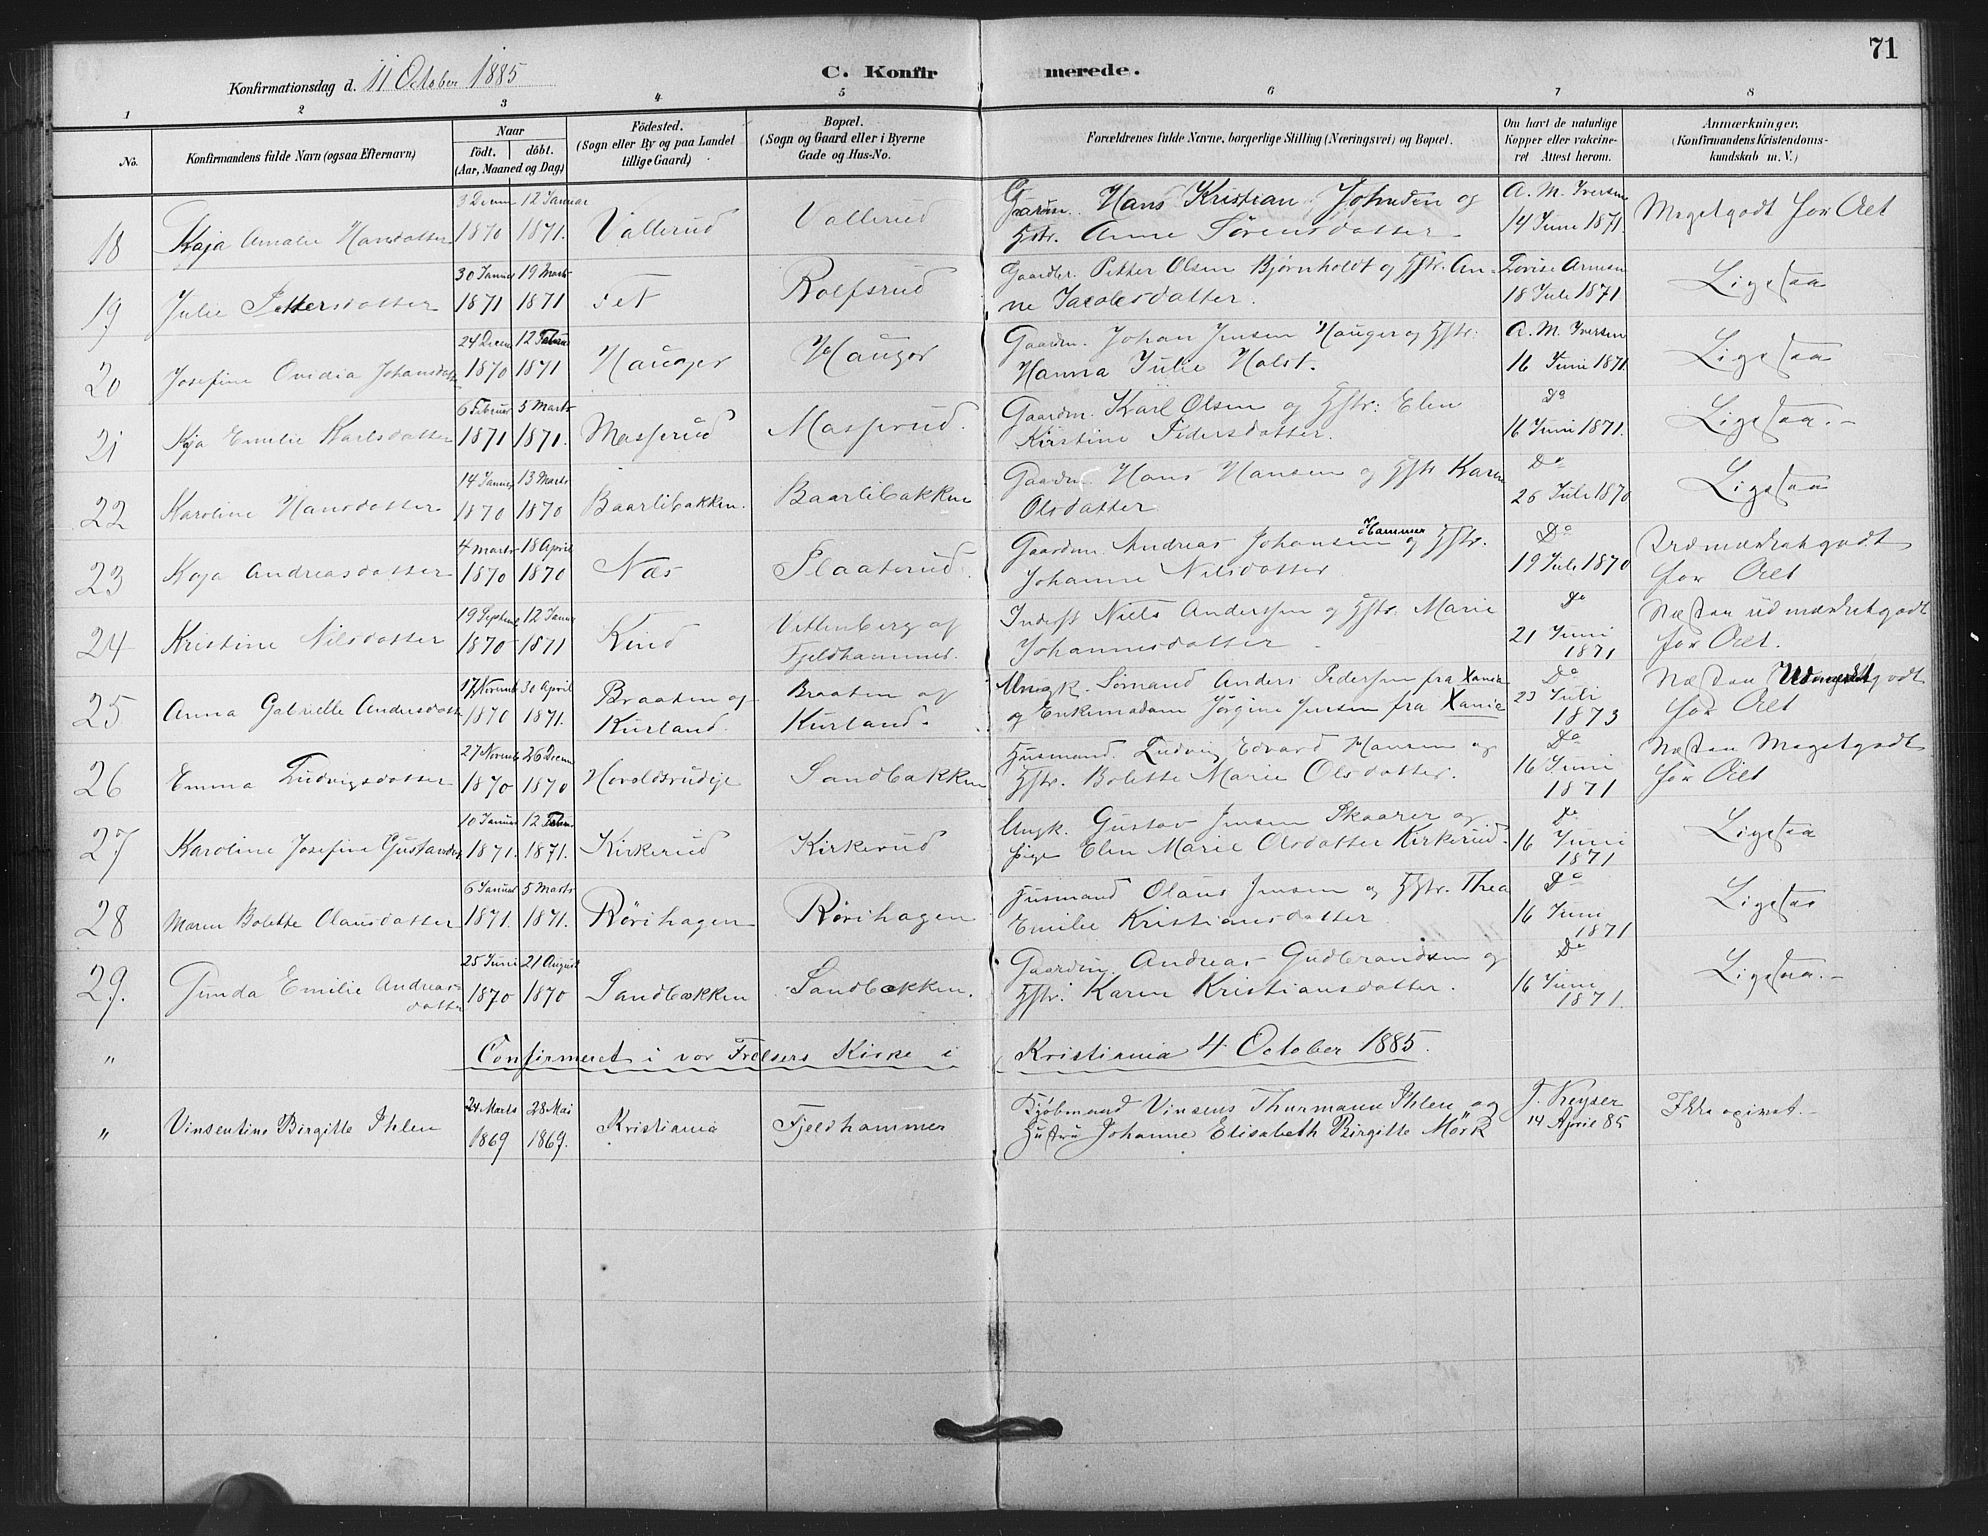 71
Konfirmationsdag d. 11 October 1885 C. Konfirmerede.
1 2 3 4 5 6 7 8
No. Konfirmandens fulde Navn (ogsaa Efternavn) Naar födt. döbt. (Aar, Maaned og Dag) Födested. (Sogn eller By og paa Landet tillige Gaard) Bopæl. (Sogn og Gaard eller i Byerne Gade og Hus-No. Forældrenes fulde Navne, borgerlige Stilling (Næringsvei) og Bopæl. Om havt de naturlige Kopper eller vakcineret Attest herom. Anmærkninger. (Konfirmandens Kristendomskundskab m. V.)
18 Kaja Amalie Hansdatter 3 Decem 1870 12 Januar 1871. Vallerud Vallerud Hans Kristian Johnsen og
Hstr. Anne Sörensdatter. A. M. Iversen 14 Juni 1871. Megetgodt for Alt
19 Julie Pettersdatter 30 Januar 1871 19 Marts 1871 Fet Rolfsrud Gaardbr. Petter Olsen Bjørnholdt og Hstr. An-
ne Jacobsdatter. 18 Juli 1871 Ligesaa
20 Josefine Ovidia Johansdatter 24 Decem 1870 12 Februar 1871 Hauger Hauger Gaardm. Johan Jensen Hauger og Hstr:
Hanna Julie Holst. A. M. Iversen 16 Juni 1871. Ligesaa
21 Kaja Emilie Karlsdatter 6 Februar 1871 5 Marts 1871. Masserud Masserud. Gaardm. Karl Olsen og Hstr: Elen
Kirstine Pedersdatter. Do 16 Juni 1871. Ligesaa.-
22 Karoline Hansdatter 14 Januar 1870 13 Marts 1870 Baarlibakken. Baarlibakken Gaardm. Hans Hansen og Hstr Karen
Olsdatter Do 26 Juli 1870 Ligesaa
23 Kaja Andreasdatter 4 Marts 1870 18 April 1870 Næs Slaaterud. Gaardm. Andreas Johansen Hammer og Hstr.
Johanne Nilsdatter Do 19 Juli 1870 Udmærketgodt
for Alt
24 Kristine Nilsdatter 19 Septemb 1870 12 Januar 1871 Kind Vittenberg af
Fjeldhammer. Inderst Niels Anderssen og Hstr. Marie
Johannesdatter. Do 21 Juni 1871 Næsten udmærketgodt
for Alt.
25 Anna Gabrielle Andersdatter 17 Novemb 1870 30 April 1871. Braaten og
Kurland. Braaten af
Kurland. Ungk. Sömand Anders Pedersen fra Xania
og Enkemadam Jörgine Jensen fra Xania Do 23 Juli 1873 Næsten Udmærketgodt
for Alt
26 Emma Ludvigsdatter 27 Novemb 1870 26 Decem 1870 Sandbakken Husmand. Ludvig Edvard Hansen og
Hstr. Bolette Marie Olsdatter. Do 16 Juni 1871 Næsten Megetgodt
for Alt
27 Karoline Josefine Gustavsdtr 10 Januar 1871. 12 Febru. 1871. Kirkerud Kirkerud Ungk. Gustav Jensen Skaarer og
Pige Elen Marie Olsdatter Kirkerud. Do 16 Juni 1871 Ligesaa
28 Maren Bolette Olausdatter 6 Januar 1871. 5 Marts 1871. Rørihagen Rørihagen Husmand Olaus Jensen og Hstr. Thea
Emilie Kristiansdatter Do 16 Juni 1871 Ligesaa
29. Gunda Emilie Andreas-
datter 25 Juni 1870 21 August 1870 Sandbakken Sandbakken. Gaardm. Andreas Gudbrandsen og
Hstr. Karen Kristiansdatter. Do 16 Juni 1871. Ligesaa.-
" Confirmeret i vor Frelsers Kirke i Kristiania 4 October 1885.
" Vinsentine Birgitte Ihlen 24 Marts 1869 28 Mai 1869. Kristiania Fjeldhammer Kjöbmand Vinsens Thurmann Ihlen og
Hustru Johanne Elisabeth Birgitte Mörk J. Keyser 14 April 85 Ikke opgivet.-